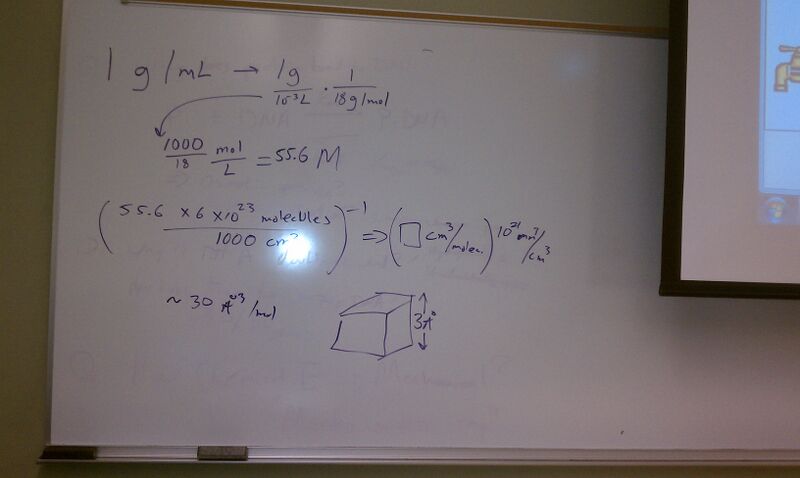 1 g/mL → 1g / 10⁻³L · 1 / 18g/mol
1000/18 mol/L = 55.6 M
(55.6 × 6 × 10²³ molecules / 1000 cm³)⁻¹ ⇒ (□ cm³/molec.) 10²¹ nm³/cm³
~ 30 Å³/mol
3Å